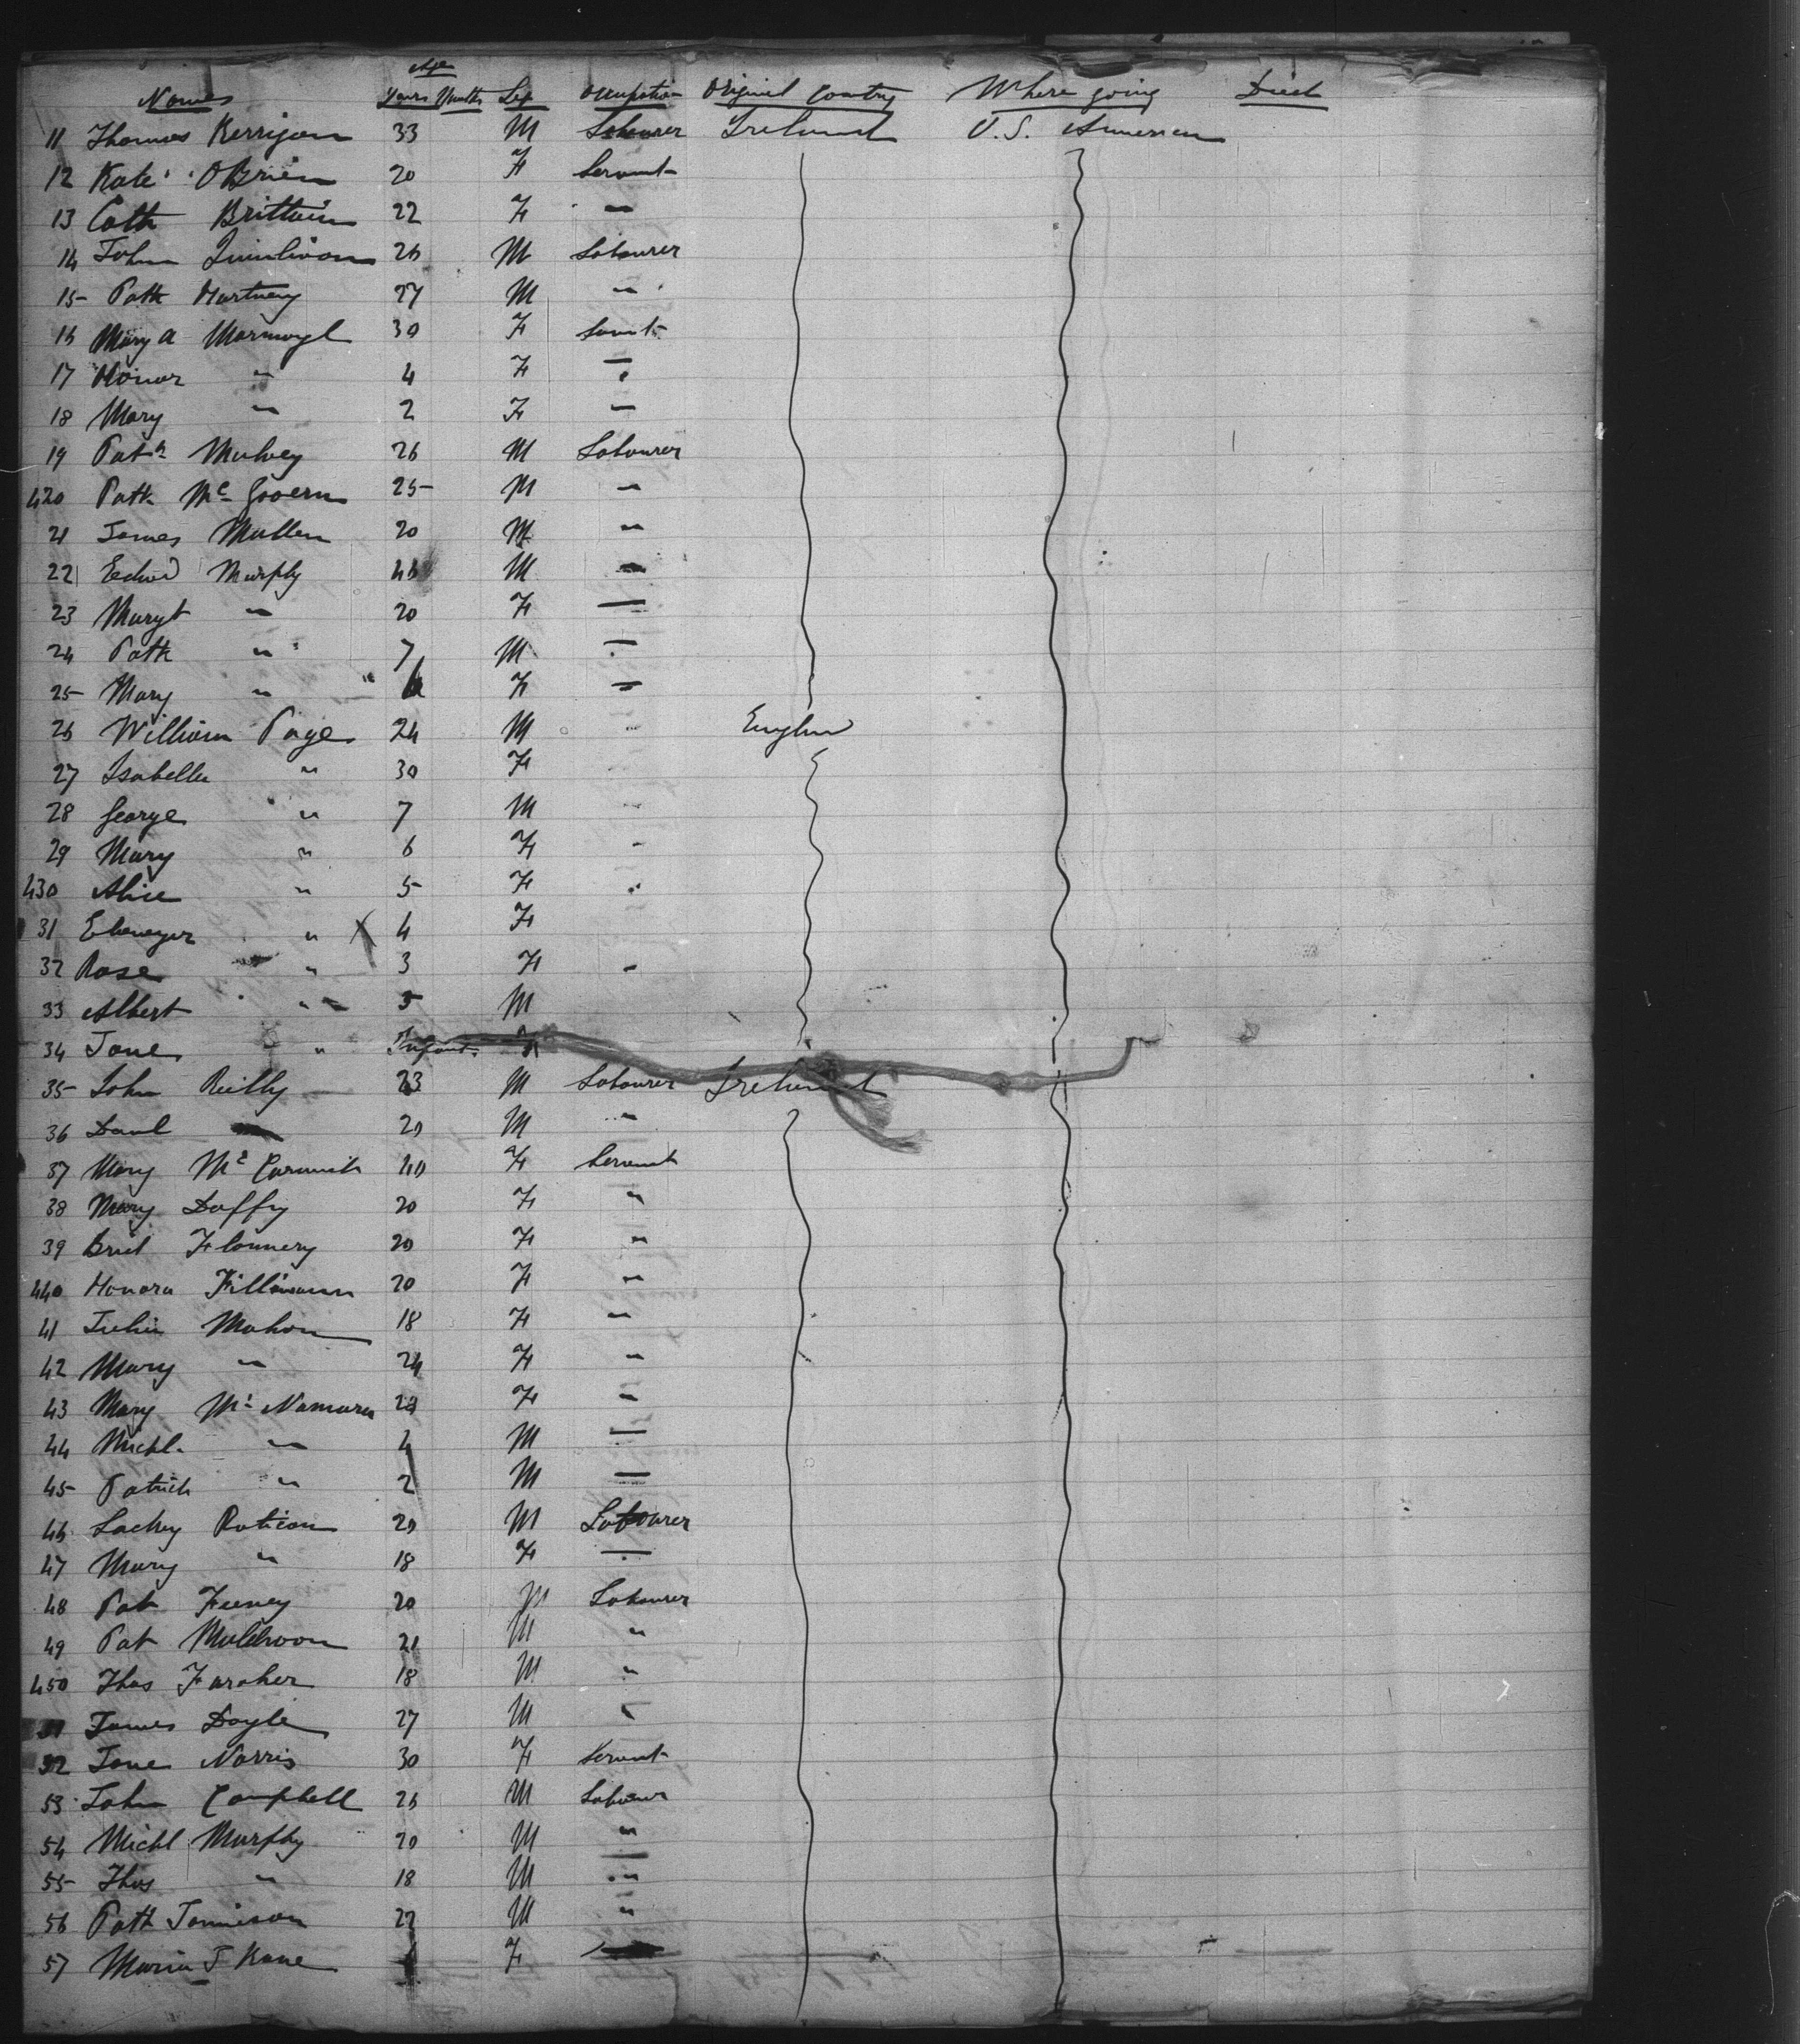 Age
Names Years Months Sex Occupation Original Contry Where going Died
11 Thomas Kerrigan 33 M Labourer Ireland U.S. America
12 Kate OBrien 20 F Servant
13 Cath Brittain 22 F "
14 John Quinlivan 26 M Labourer
15 Patk Hartney 27 M "
16 Mary A 30 F Servt
17 Honor " 4 F —
18 Mary " 2 F —
19 Patk Mulvey 26 M Labourer
420 Patk Mc Govern 25 M "
21 James Mullen 20 M "
22 Edwd Murphy 46 M "
23 Margt " 20 F —
24 Patk " 7 M —
25 Mary " F —
26 William Page 24 M Englan
27 Isabella " 30 F
28 George " 7 M
29 Mary " 6 F
430 Alice " 5 F
31 Ebenezer " X 4 F
32 Rose " 3 F
33 Albert " M
34 Jane " Infant
35 John Reilly 23 M Labourer Ireland
36 Danl 20 M "
37 Mary Mc Cormick 40 F Servant
38 Mary Duffy 20 F "
39 Brid Flannery 20 F "
440 Honora 20 F "
41 Julia Mahon 18 F "
42 Mary " 24 F "
43 Mary Mc Namara F "
44 Michl " 4 M —
45 Patrick " 2 M —
46 Lackey Rutican 20 M Labourer
47 Mary " 18 F —
48 Pat Feeney 20 M Labourer
49 Pat Muldoon 21 M "
450 Thos Faraher 18 M "
51 James Doyle 27 M "
52 Jane Norris 30 F Servant
53 John Campbell 26 M Labour
54 Michl Murphy 20 M "
55 Thos " 18 M "
56 Patk Jamieson 22 M "
57 Maria J Kane F